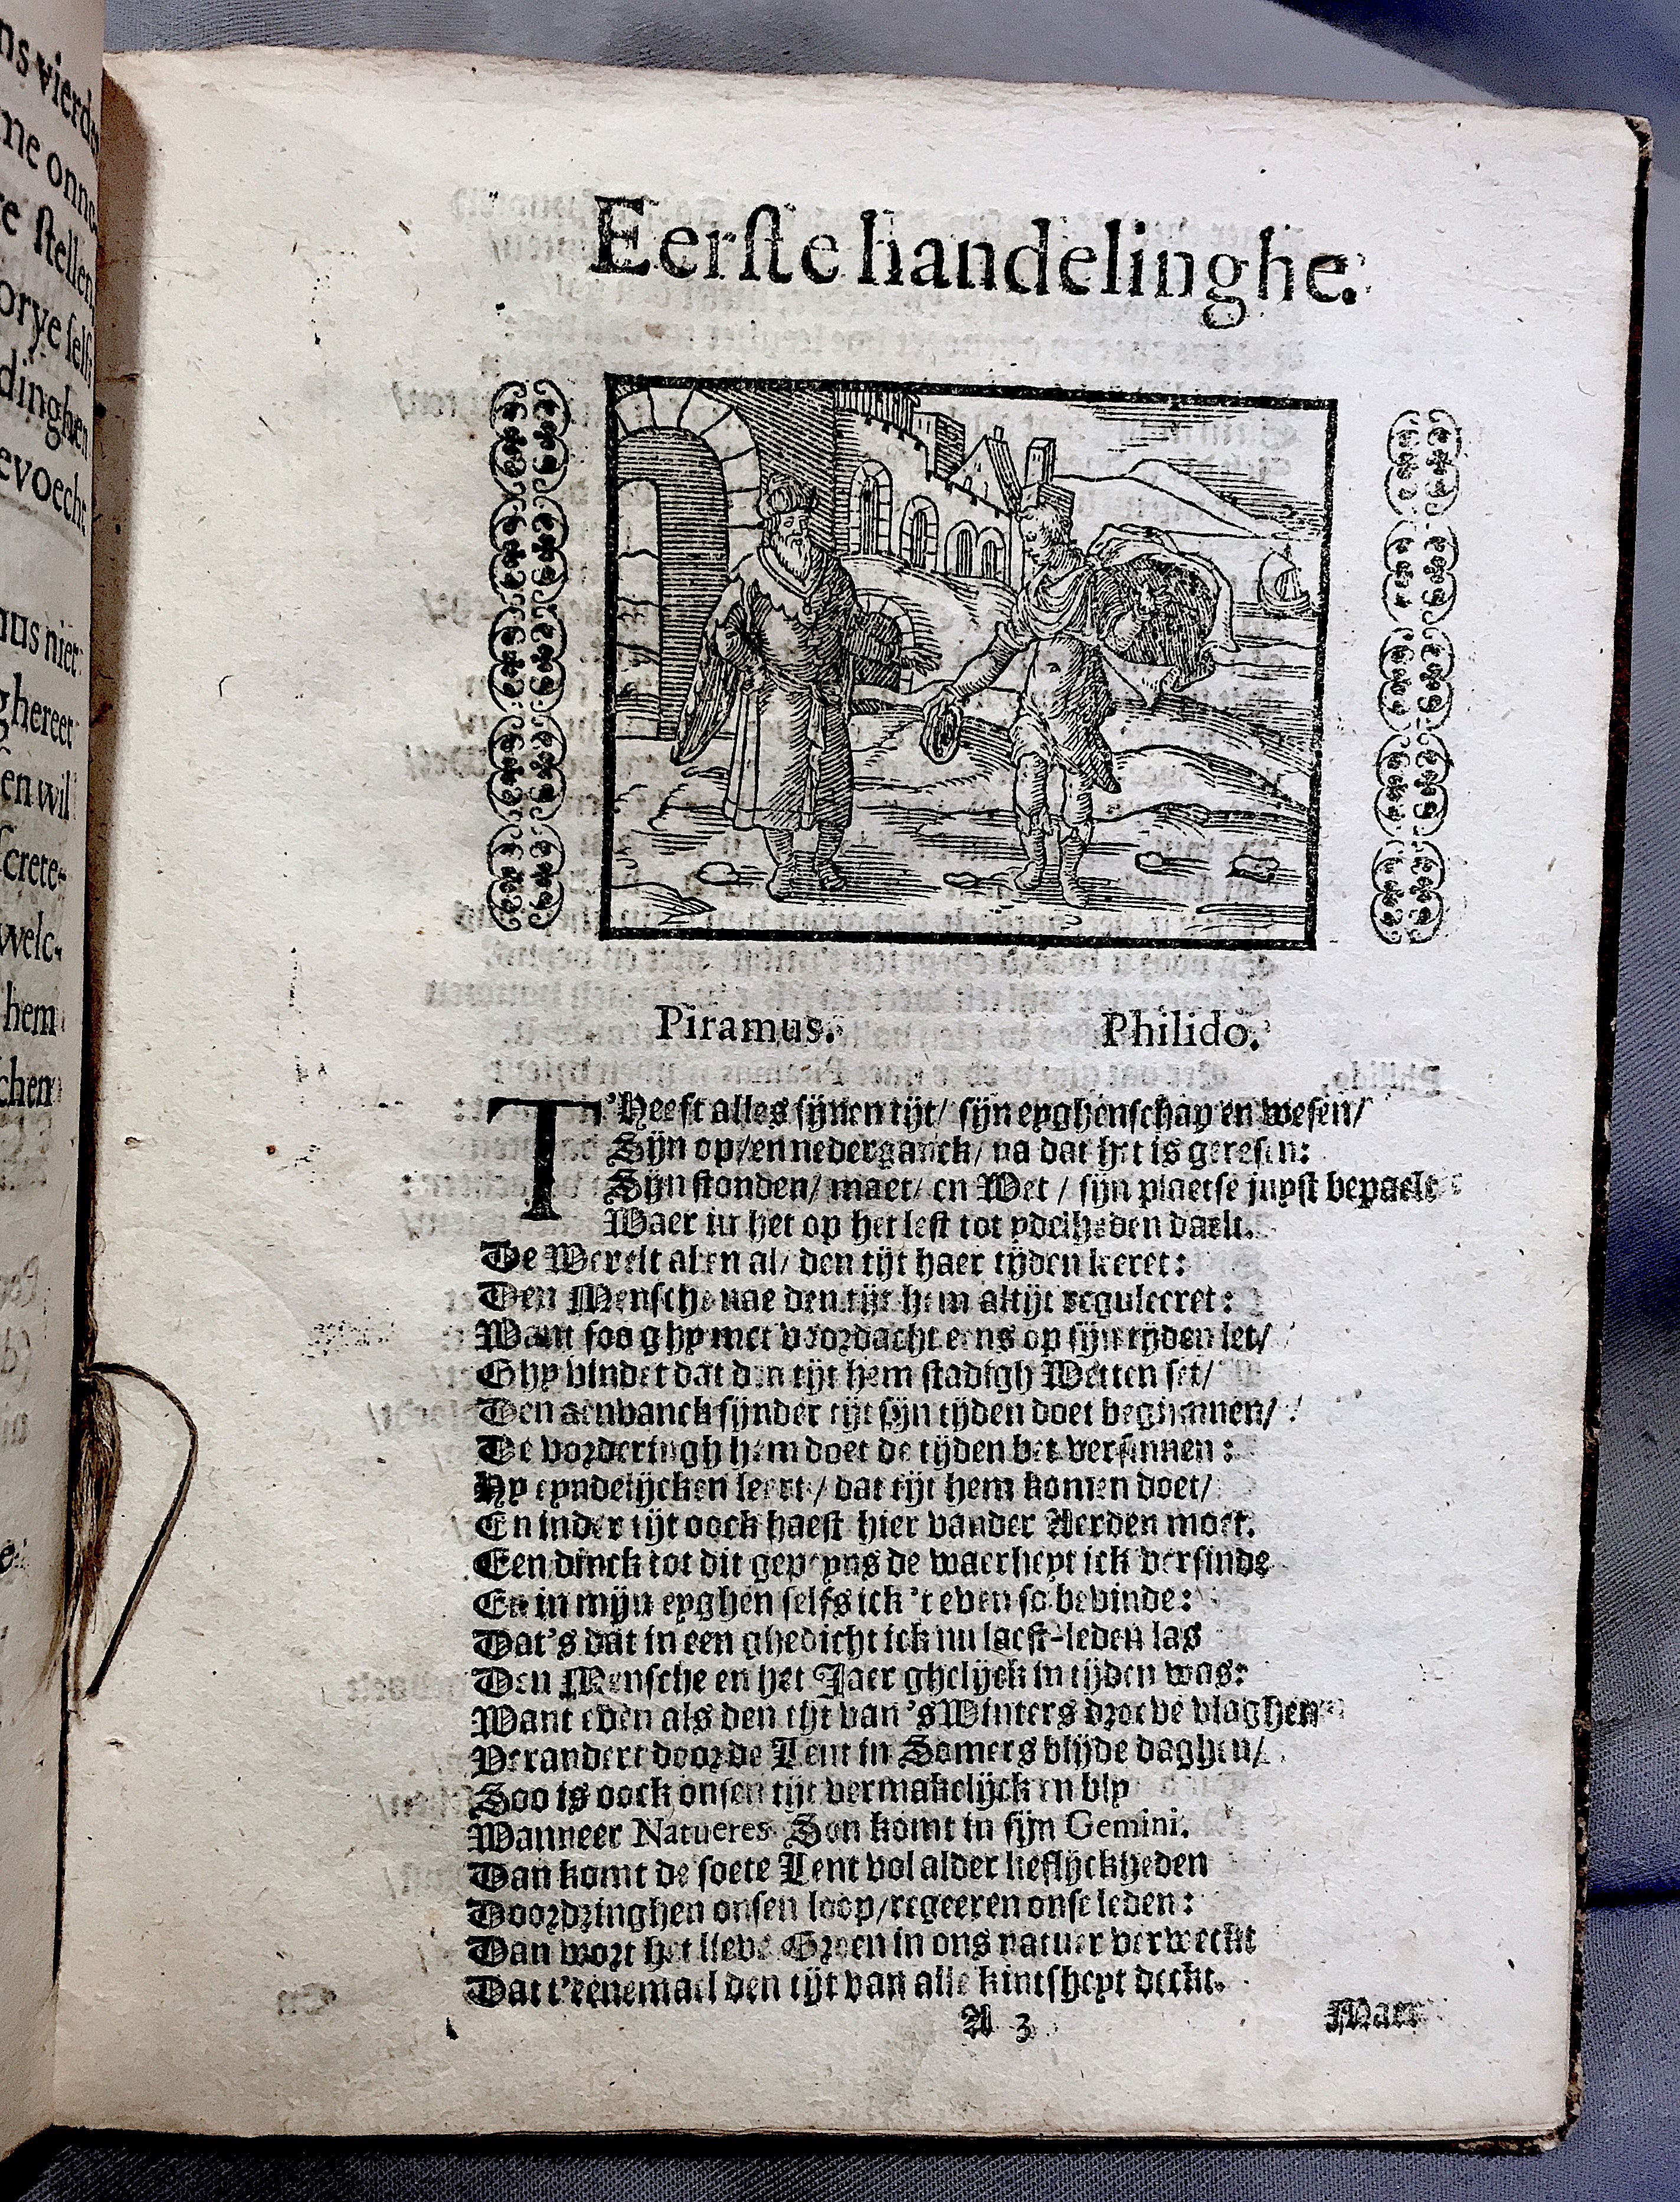 ns vierde
me onno
re ſtellen
orye ſelfs
dinghen
evoecht
aus niet
ghereet
en wil
ſcrete-
welc-
hem
ſchen
Eerſte handelinghe.
Piramus. Philido.
T'Heeft alles ſijnen tijt/ ſijn eyghenſchap en weſen/
Sijn op/en nederganck/ na dat het is gereſen:
Sijn ſtonden/ maet/ en Wet / ſijn plaetſe juyſt bepaelt
Waer in het op het leſt tot ydelheden daelt.
De Werelt al en al/ den tijt haer tijden keeret:
Den Menſche nae den tijt hem altijt reguleeret:
Want ſoo ghy met voordacht eens op ſijn tijden let/
Ghy vindet dat den tijt hem ſtadigh Wetten ſet/
Den aenvanck ſijnder tijt ſijn tijden doet beginnen/
De vorderingh hem doet de tijden bet verſinnen:
Hy eyndelijcken leert/ dat tijt hem komen doet/
En inder tijt oock haeſt hier vander Aerden moet.
Een dinck tot dit gepeyns de waerheyt ick verſinde
En in mijn eyghen ſelfs ick 't even ſo bevinde:
Dat's dat in een ghedicht ick nu laeſt-leden las
Den Menſche en het Jaer ghelijck in tijden was:
Want even als den tijt van 's Winters droeve vlaghen
Verandert door de Lent in Somers blijde daghen/
Soo is oock onſen tijt vermakelijck en bly
Wanneer Natueres Son komt in ſijn Gemini.
Dan komt de ſoete Lent vol alder lieflijckheden
Doordringhen onſen loop/regeeren onſe leden:
Dan wort het lieve Groen in ons natuer verweckt
Dat t'eenemael den tijt van alle kintſheyt deckt.
A 3 Maer